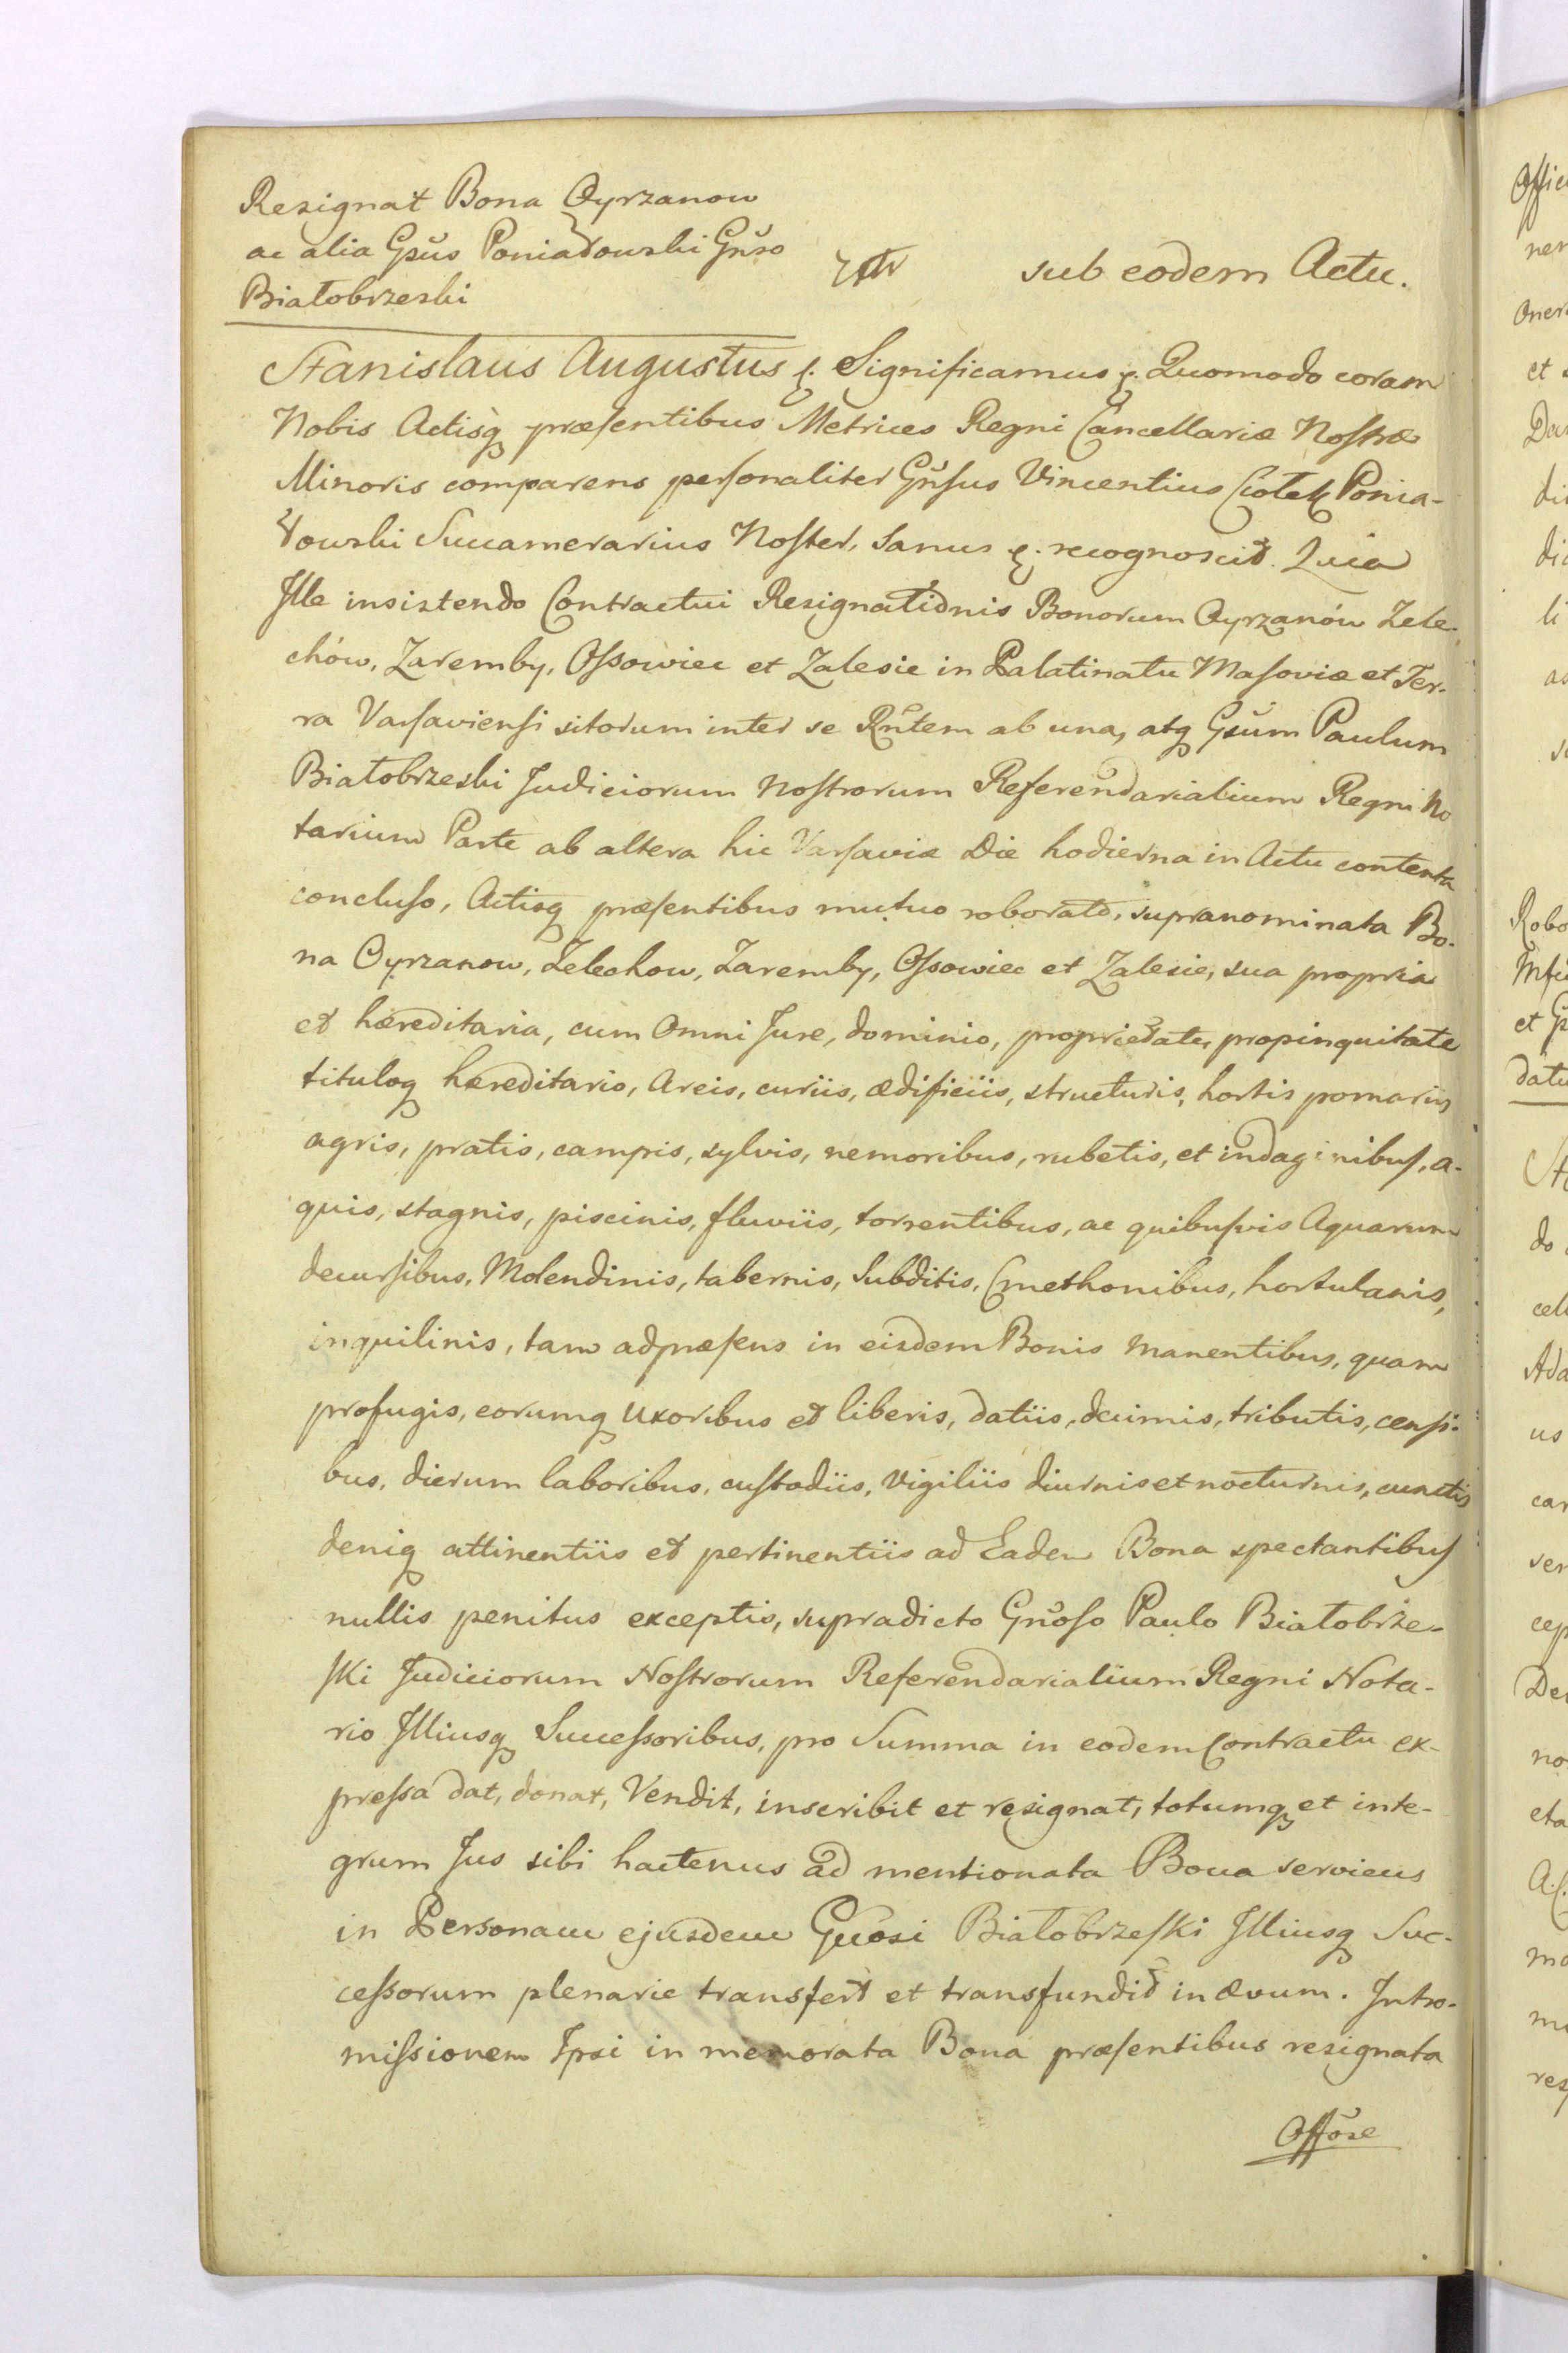 Resignat Bona Oyrzanow
ac alia Gsus Poniatowski Gnso
Białobrzeski
sub eodem Actu.
Stanislaus Augustus &. Significamus &. Quomodo coram
Nobis Actisq præsentibus Metrices Regni Cancellariæ Nostræ
Minoris comparens personaliter Gnsus Vincentius Ciołek Ponia-
towski Succamerarius Noster, sanus &. recognoscit. Quia
Ille insistendo Contractui Resignationis Bonorum Oyrzanów Zele-
chów, Zaremby, Ossowiec et Zalesie in Palatinatu Masoviæ et Ter-
ra Varsaviensi sitorum inter se Rntem ab una, atq Gsum Paulum
Białobrzeski Judiciorum Nostrorum Referendarialium Regni No
tarium Parte ab altera hic Varsaviæ Die hodierna in Actu contenta
concluso, Actisq præsentibus mutuo roborato, supranominata Bo-
na Oyrzanow, Zelechow, Zaremby, Ossowiec et Zalesie, sua propria
et hæreditaria, cum Omni Jure, dominio, proprietate, propinquitate
tituloq hæreditario, Areis, curiis, ædificiis, structuris, hortis pomariis
agris, pratis, campis, sylvis, nemoribus, rubetis, et indaginibus, a-
quis, stagnis, piscinis, fluviis, torrentibus, ac quibusvis Aquarum
decursibus, Molendinis, tabernis, Subditis, Cmethonibus, hortulanis,
inquilinis, tam adpræsens in eisdem Bonis Manentibus, quam
profugis, eorumq Uxoribus et liberis, datiis, decimis, tributis, censi-
bus, dierum laboribus, custodiis, Vigiliis diurnis et nocturnis, cunctis
deniq attinentiis et pertinentiis ad Eadem Bona spectantibus
nullis penitus exceptis, supradicto Gnoso Paulo Białobrze-
ski Judiciorum Nostrorum Referendarialium Regni Nota-
rio Illiusq Successoribus, pro Summa in eodem Contractu ex-
pressa dat, donat, Vendit, inscribit et resignat, totumq et inte-
grum Jus sibi hactenus ad mentionata Bona serviens
in Personam ejusdem Gnosi Białobrzeski Illiusq Suc-
cessorum plenarie transfert et transfundit in ævum. Intro-
missionem Ipsi in memorata Bona præsentibus resignata
Offose